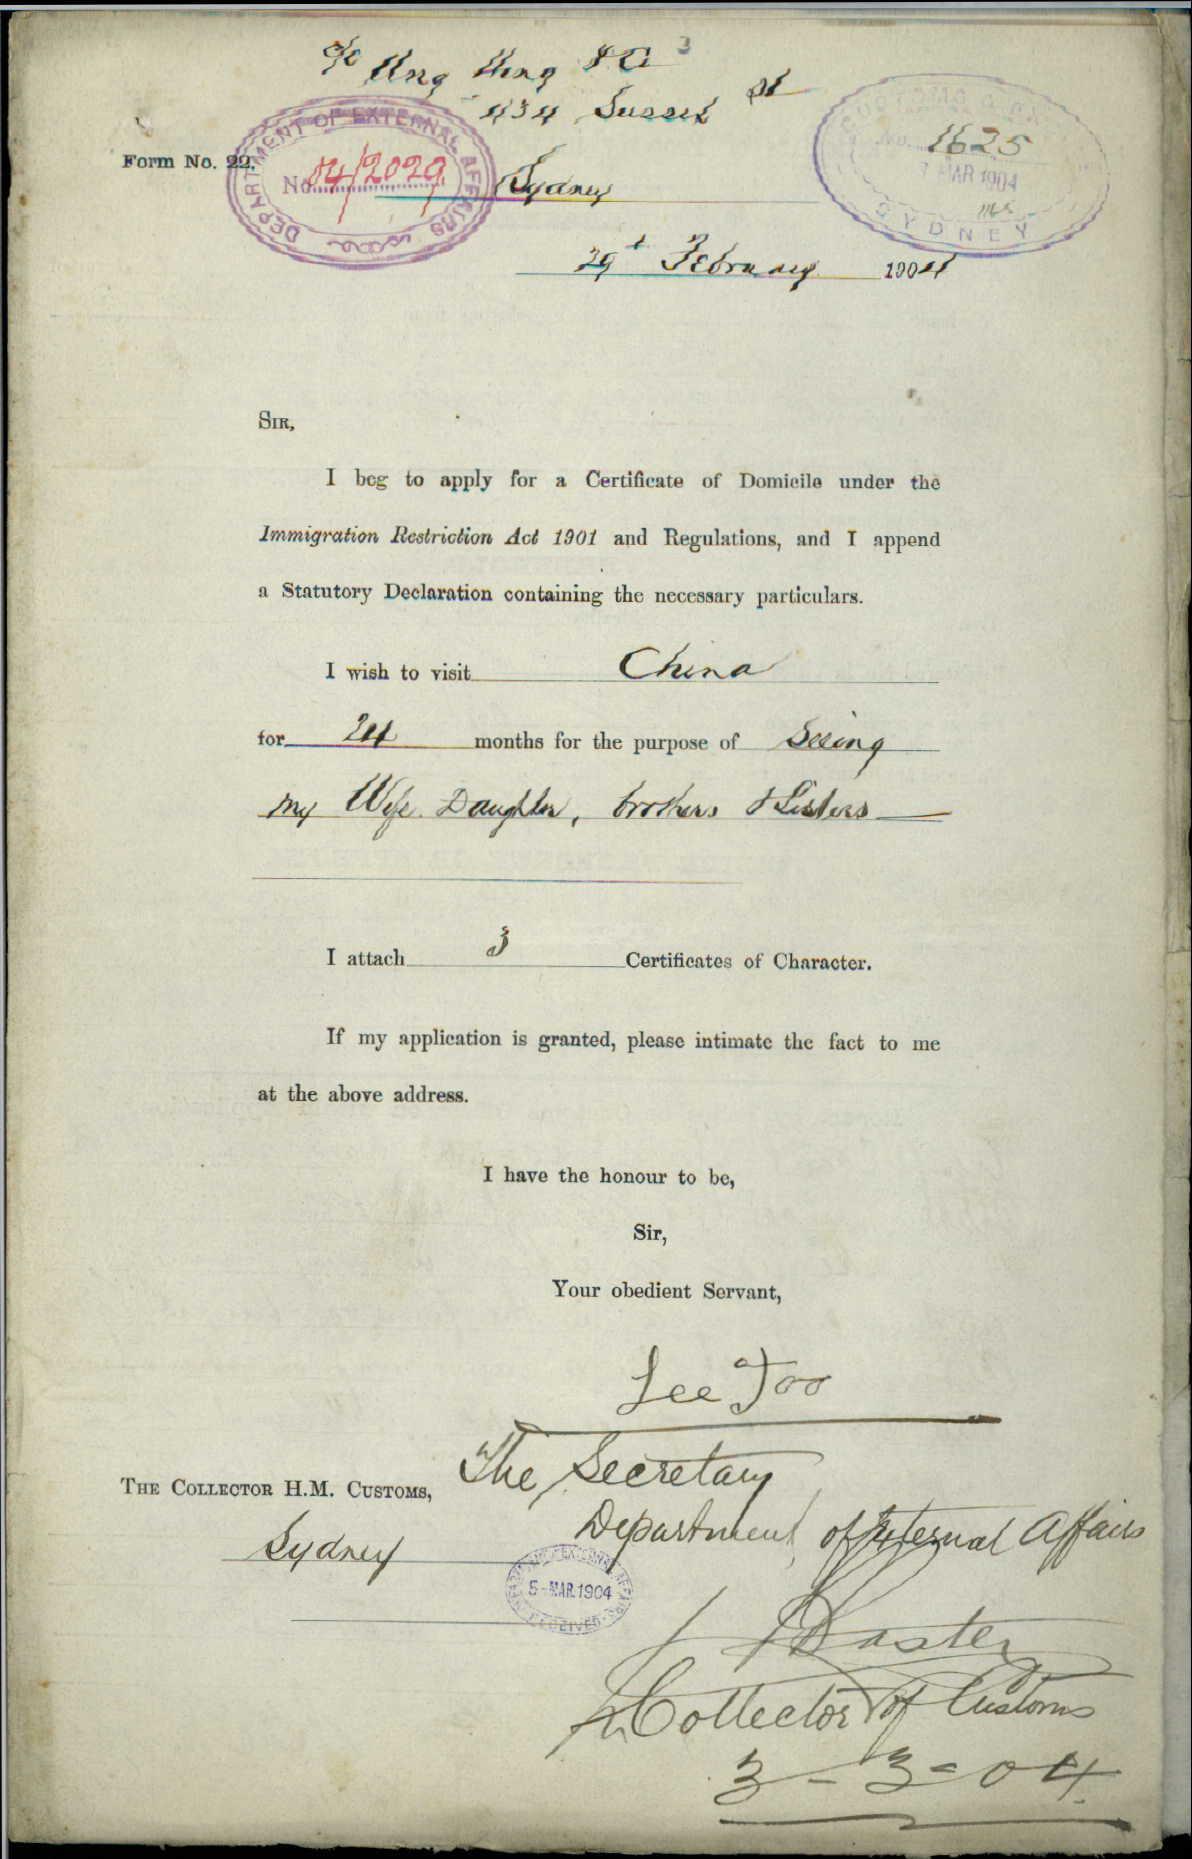 c/o Ung Hing & Co
434 Sussex St
Form No. 22.
DEPARTMENT OF EXTERNAL AFFAIRS
No. 04/2029
Sydney
CUSTOMS
No. 1625
7 MAR 1904
SYDNEY
29th February 1904
SIR,
I beg to apply for a Certificate of Domicile under the
Immigration Restriction Act 1901 and Regulations, and I append
a Statutory Declaration containing the necessary particulars.
I wish to visit China
for 24 months for the purpose of Seeing
my Wife. Daughter, brothers & Sisters
I attach 3 Certificates of Character.
If my application is granted, please intimate the fact to me
at the above address.
I have the honour to be,
Sir,
Your obedient Servant,
Lee Too
THE COLLECTOR H.M. CUSTOMS,
Sydney
The Secretary
Department of External Affairs
5-MAR.1904
RECEIVED
Baxter
Collector of Customs
3-3-04